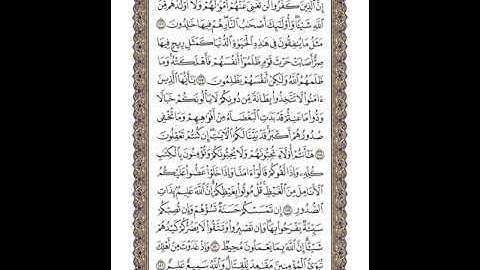 إِنَّ الَّذِينَ كَفَرُوا لَن تُغْنِيَ عَنْهُمْ أَمْوَالُهُمْ وَلَا أَوْلَادُهُم مِّنَ
اللَّهِ شَيْئًا وَأُولَٰئِكَ أَصْحَابُ النَّارِ هُمْ فِيهَا خَالِدُونَ ١١٦
مَثَلُ مَا يُنفِقُونَ فِي هَٰذِهِ الْحَيَاةِ الدُّنْيَا كَمَثَلِ رِيحٍ فِيهَا
صِرٌّ أَصَابَتْ حَرْثَ قَوْمٍ ظَلَمُوا أَنفُسَهُمْ فَأَهْلَكَتْهُ وَمَا
ظَلَمَهُمُ اللَّهُ وَلَٰكِنْ أَنفُسَهُمْ يَظْلِمُونَ ١١٧ يَا أَيُّهَا الَّذِينَ
آمَنُوا لَا تَتَّخِذُوا بِطَانَةً مِّن دُونِكُمْ لَا يَأْلُونَكُمْ خَبَالًا
وَدُّوا مَا عَنِتُّمْ قَدْ بَدَتِ الْبَغْضَاءُ مِنْ أَفْوَاهِهِمْ وَمَا تُخْفِي
صُدُورُهُمْ أَكْبَرُ قَدْ بَيَّنَّا لَكُمُ الْآيَاتِ إِن كُنتُمْ تَعْقِلُونَ
١١٨ هَا أَنتُمْ أُولَاءِ تُحِبُّونَهُمْ وَلَا يُحِبُّونَكُمْ وَتُؤْمِنُونَ بِالْكِتَابِ
كُلِّهِ وَإِذَا لَقُوكُمْ قَالُوا آمَنَّا وَإِذَا خَلَوْا عَضُّوا عَلَيْكُمُ
الْأَنَامِلَ مِنَ الْغَيْظِ قُلْ مُوتُوا بِغَيْظِكُمْ إِنَّ اللَّهَ عَلِيمٌ بِذَاتِ
الصُّدُورِ ١١٩ إِن تَمْسَسْكُمْ حَسَنَةٌ تَسُؤْهُمْ وَإِن تُصِبْكُمْ
سَيِّئَةٌ يَفْرَحُوا بِهَا وَإِن تَصْبِرُوا وَتَتَّقُوا لَا يَضُرُّكُمْ كَيْدُهُمْ
شَيْئًا إِنَّ اللَّهَ بِمَا يَعْمَلُونَ مُحِيطٌ ١٢٠ وَإِذْ غَدَوْتَ مِنْ أَهْلِكَ
تُبَوِّئُ الْمُؤْمِنِينَ مَقَاعِدَ لِلْقِتَالِ وَاللَّهُ سَمِيعٌ عَلِيمٌ ١٢١